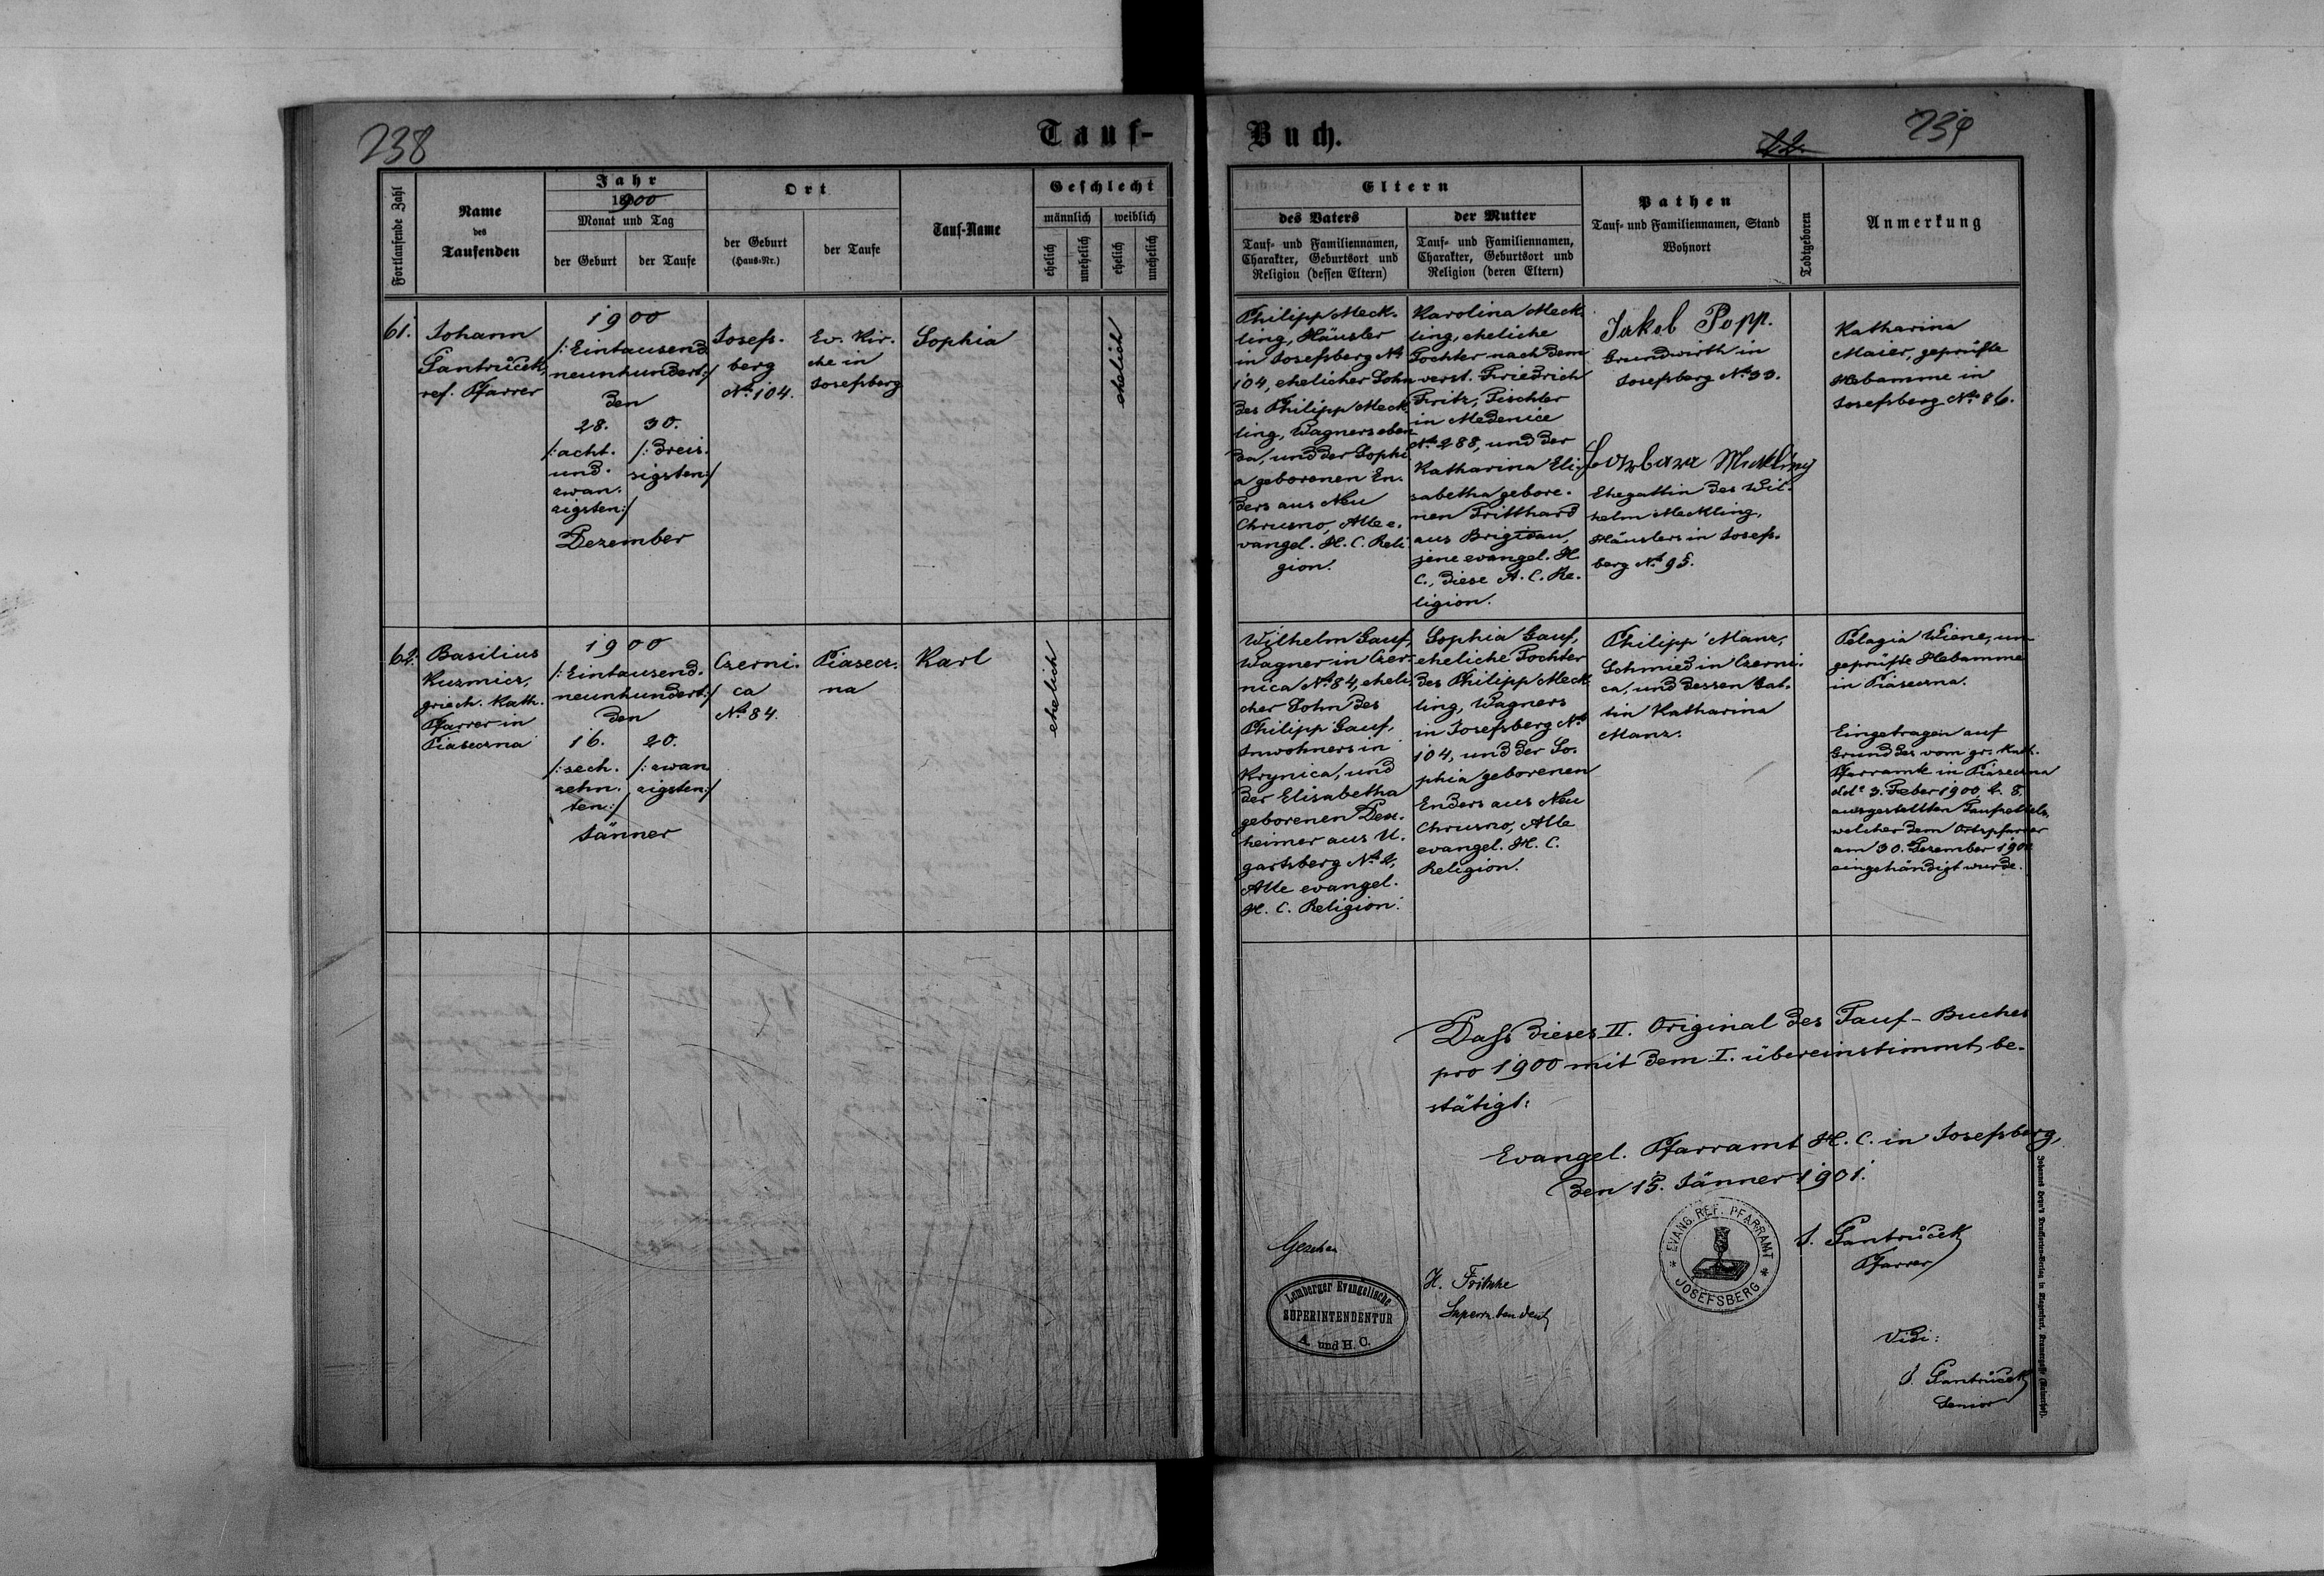 238
Tauf-
Fortlaufende Zahl
Name
des
Taufenden
Jahr
1900
Monat und Tag
der Geburt
der Taufe
Ort
der Geburt
(Haus-Nr.)
der Taufe
Tauf-Name
Geschlecht
männlich
weiblich
ehelich
unehelich
ehelich
unehelich
61.
Johann
Jantrůček,
ref. Pfarrer
1900
/:Eintausend
neunhundert:/
den
28.
/:acht.
und.
zwan.
zigsten:/
30.
/:dreis.
sigsten:/
Dezember
Josefs.
berg
No. 104.
Ev. Kir.
che in
Josefsberg
Sophia
ehelich
62.
Basilius
Kuzmicz,
griech. Kath.
Pfarrer in
Piaseczna
1900
/:Eintausend.
neunhundert:/
den
16.
/:sech.
zehn.
ten:/
20.
/:zwan
zigsten:/
Jänner
Czerni.
ca
No. 84.
Piasecz.
na
Karl
ehelich
Buch.
239
Eltern
des Vaters
Tauf- und Familiennamen,
Charakter, Geburtsort und
Religion (dessen Eltern)
der Mutter
Tauf- und Familiennamen,
Charakter, Geburtsort und
Religion (deren Eltern)
Pathen
Tauf- und Familiennamen, Stand
Wohnort
Todtgeboren
Anmerkung
Philipp Meck.
ling, Häusler
in Josefsberg No
104, ehelicher Sohn
des Philipp Meck
ling, Wagners eben
da, und der Sophi
a geborenen En.
ders aus Neu
Chrusno, Alle e.
vangel. H. C. Reli
gion.
Karolina Meck
ling, eheliche
Tochter nach dem
verst. Friedrich
Fritz, Tischler
in Medenice
No. 288, und der
Katharina Eli.
sabetha gebore.
nen Tritthard
aus Brigidau,
jene evangel. H.
C., diese A. C. Re.
ligion.
Jakob Popp.
Grundwirth in
Josefsberg No. 33.
Barbara Meckling
Ehegattin des Wil.
helm Meckling,
Häuslers in Josefs.
berg No. 95.
Katharina
Maier, geprüfte
Hebamme in
Josefsberg No. 86.
Wilhelm Gauf,
Wagner in Czer.
nica No. 84, eheli.
cher Sohn des
Philipp Gauf,
Inwohners in
Krynica, und
der Elisabetha
geborenen Dex.
heimer aus U.
gartsberg No. 2,
Alle evangel.
H. C. Religion.
Sophia Gauf,
eheliche Tochter
des Philipp Meck
ling, Wagners
in Josefsberg No
104, und der So.
phia geborenen
Enders aus Neu
Chrusno, Alle
evangel. H. C.
Religion.
Philipp Manz,
Schmied in Czerni.
ca, und dessen Gat.
tin Katharina
Manz.
Pelagia Wiene, un
geprüfte Hebamme
in Piaseczna.
Eingetragen auf
Grund des vom gr. Kath.
Pfarramte in Piaseczna
ddo 3. Feber 1900, Z. 8,
ausgestellten Taufzettels,
welcher dem Ortspfarrer
am 30. Dezember 1900
eingehändigt wurde.
Dass dieses II. Original des Tauf-Buches
pro 1900 mit dem I. übereinstimmt, be.
stätigt:
Evangel. Pfarramt H. C. in Josefsberg,
den 15. Jänner 1901.
J. Jantrůček
Pfarrer
* EVANG. REF. PFARRAMT *
JOSEFSBERG
Gesehen
Lemberger Evangelische
SUPERINTENDENTUR
A. und H. C.
H. Fritsche
Superintendent
Vidi:
J. Jantrůček
Senior